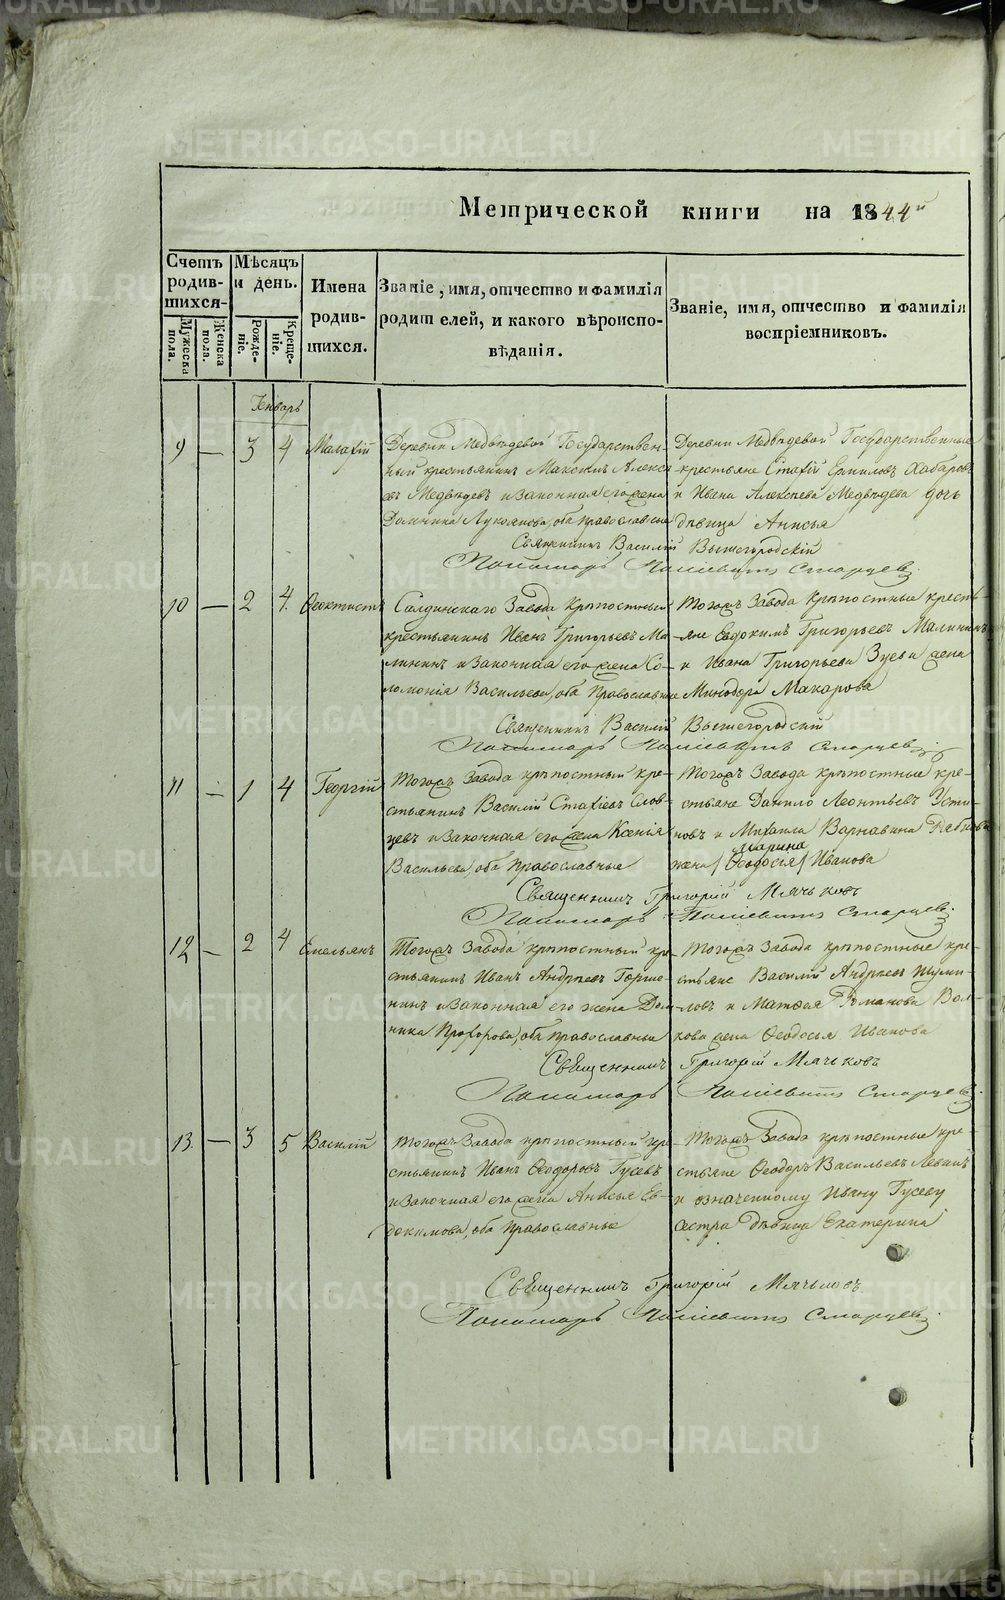 METRIKI.GASO-URAL.RU
Метрической книги на 1844й
Счетъ родив-шихся
Мужеска пола.
Женска пола.
Мѣсяцъ и день.
Рожде-ніе.
Креще-ніе.
Имена родив-шихся.
Званіе, имя, отчество и фамилія
родителей, и какого вѣроиспо-
вѣданія.
Званіе, имя, отчество и фамилія
воспріемниковъ.
Генварь
9 — 3 4 Малахій
Деревни Медвѣдевой Государствен-
ный крестьянинъ Максимъ Алексѣ-
въ Медвѣдевъ и законная его жена
Домника Лукоянова, оба православные
Деревни Медвѣдевой Государственные
крестьяне Стахій Ермиловъ Хабаровъ
и Ивана Алексѣева Медвѣдева дочь
дѣвица Анисья
Священникъ Василій Вышегородскій
Пономарь Старцевъ
10 — 2 4. Ѳеоктистъ
Салдинскаго Завода крѣпостный
крестьянинъ Иванъ Григорьевъ Ма-
лининъ и законная его жена Со-
ломонія Васильева, оба православные
Тогожъ Завода крѣпостные кресть-
яне Евдокимъ Григорьевъ Малининъ
и Ивана Григорьева Зуева жена
Минодора Макарова
Священникъ Василій Вышегородскій
Пономарь Старцевъ
11 — 1 4 Георгій
Тогожъ Завода крѣпостный кре-
стьянинъ Василій Стахіевъ
и законная его жена Ксенія
Васильева, оба православные
Тогожъ Завода крѣпостные кре-
стьяне Данило Леонтьевъ Усти-
новъ и Михаила Варнавина
Марина
жена /Ѳеодосія/ Иванова
Священникъ Григорій Мячковъ
Пономарь Старцевъ
12 — 2 4 Емельянъ
Тогожъ Завода крѣпостный кре-
стьянинъ Иванъ Андреевъ
и законная его жена Дом-
ника Прохорова, оба православные
Тогожъ Завода крѣпостные кре-
стьяне Василій Андреевъ Шуми-
ловъ и Матвея Романова Вол-
кова жена Ѳеодосья Иванова
Священникъ Григорій Мячковъ
Пономарь Старцевъ
13 — 3 5 Василій
Тогожъ Завода крѣпостный кре-
стьянинъ Иванъ Ѳеодоровъ Гусевъ
и законная его жена Анисья Ев-
докимова, оба православные
Тогожъ Завода крѣпостные кре-
стьяне Ѳеодоръ Васильевъ
и означенному Ивану Гусеву
сестра дѣвица Екатерина
Священникъ Григорій Мячковъ
Пономарь Старцевъ